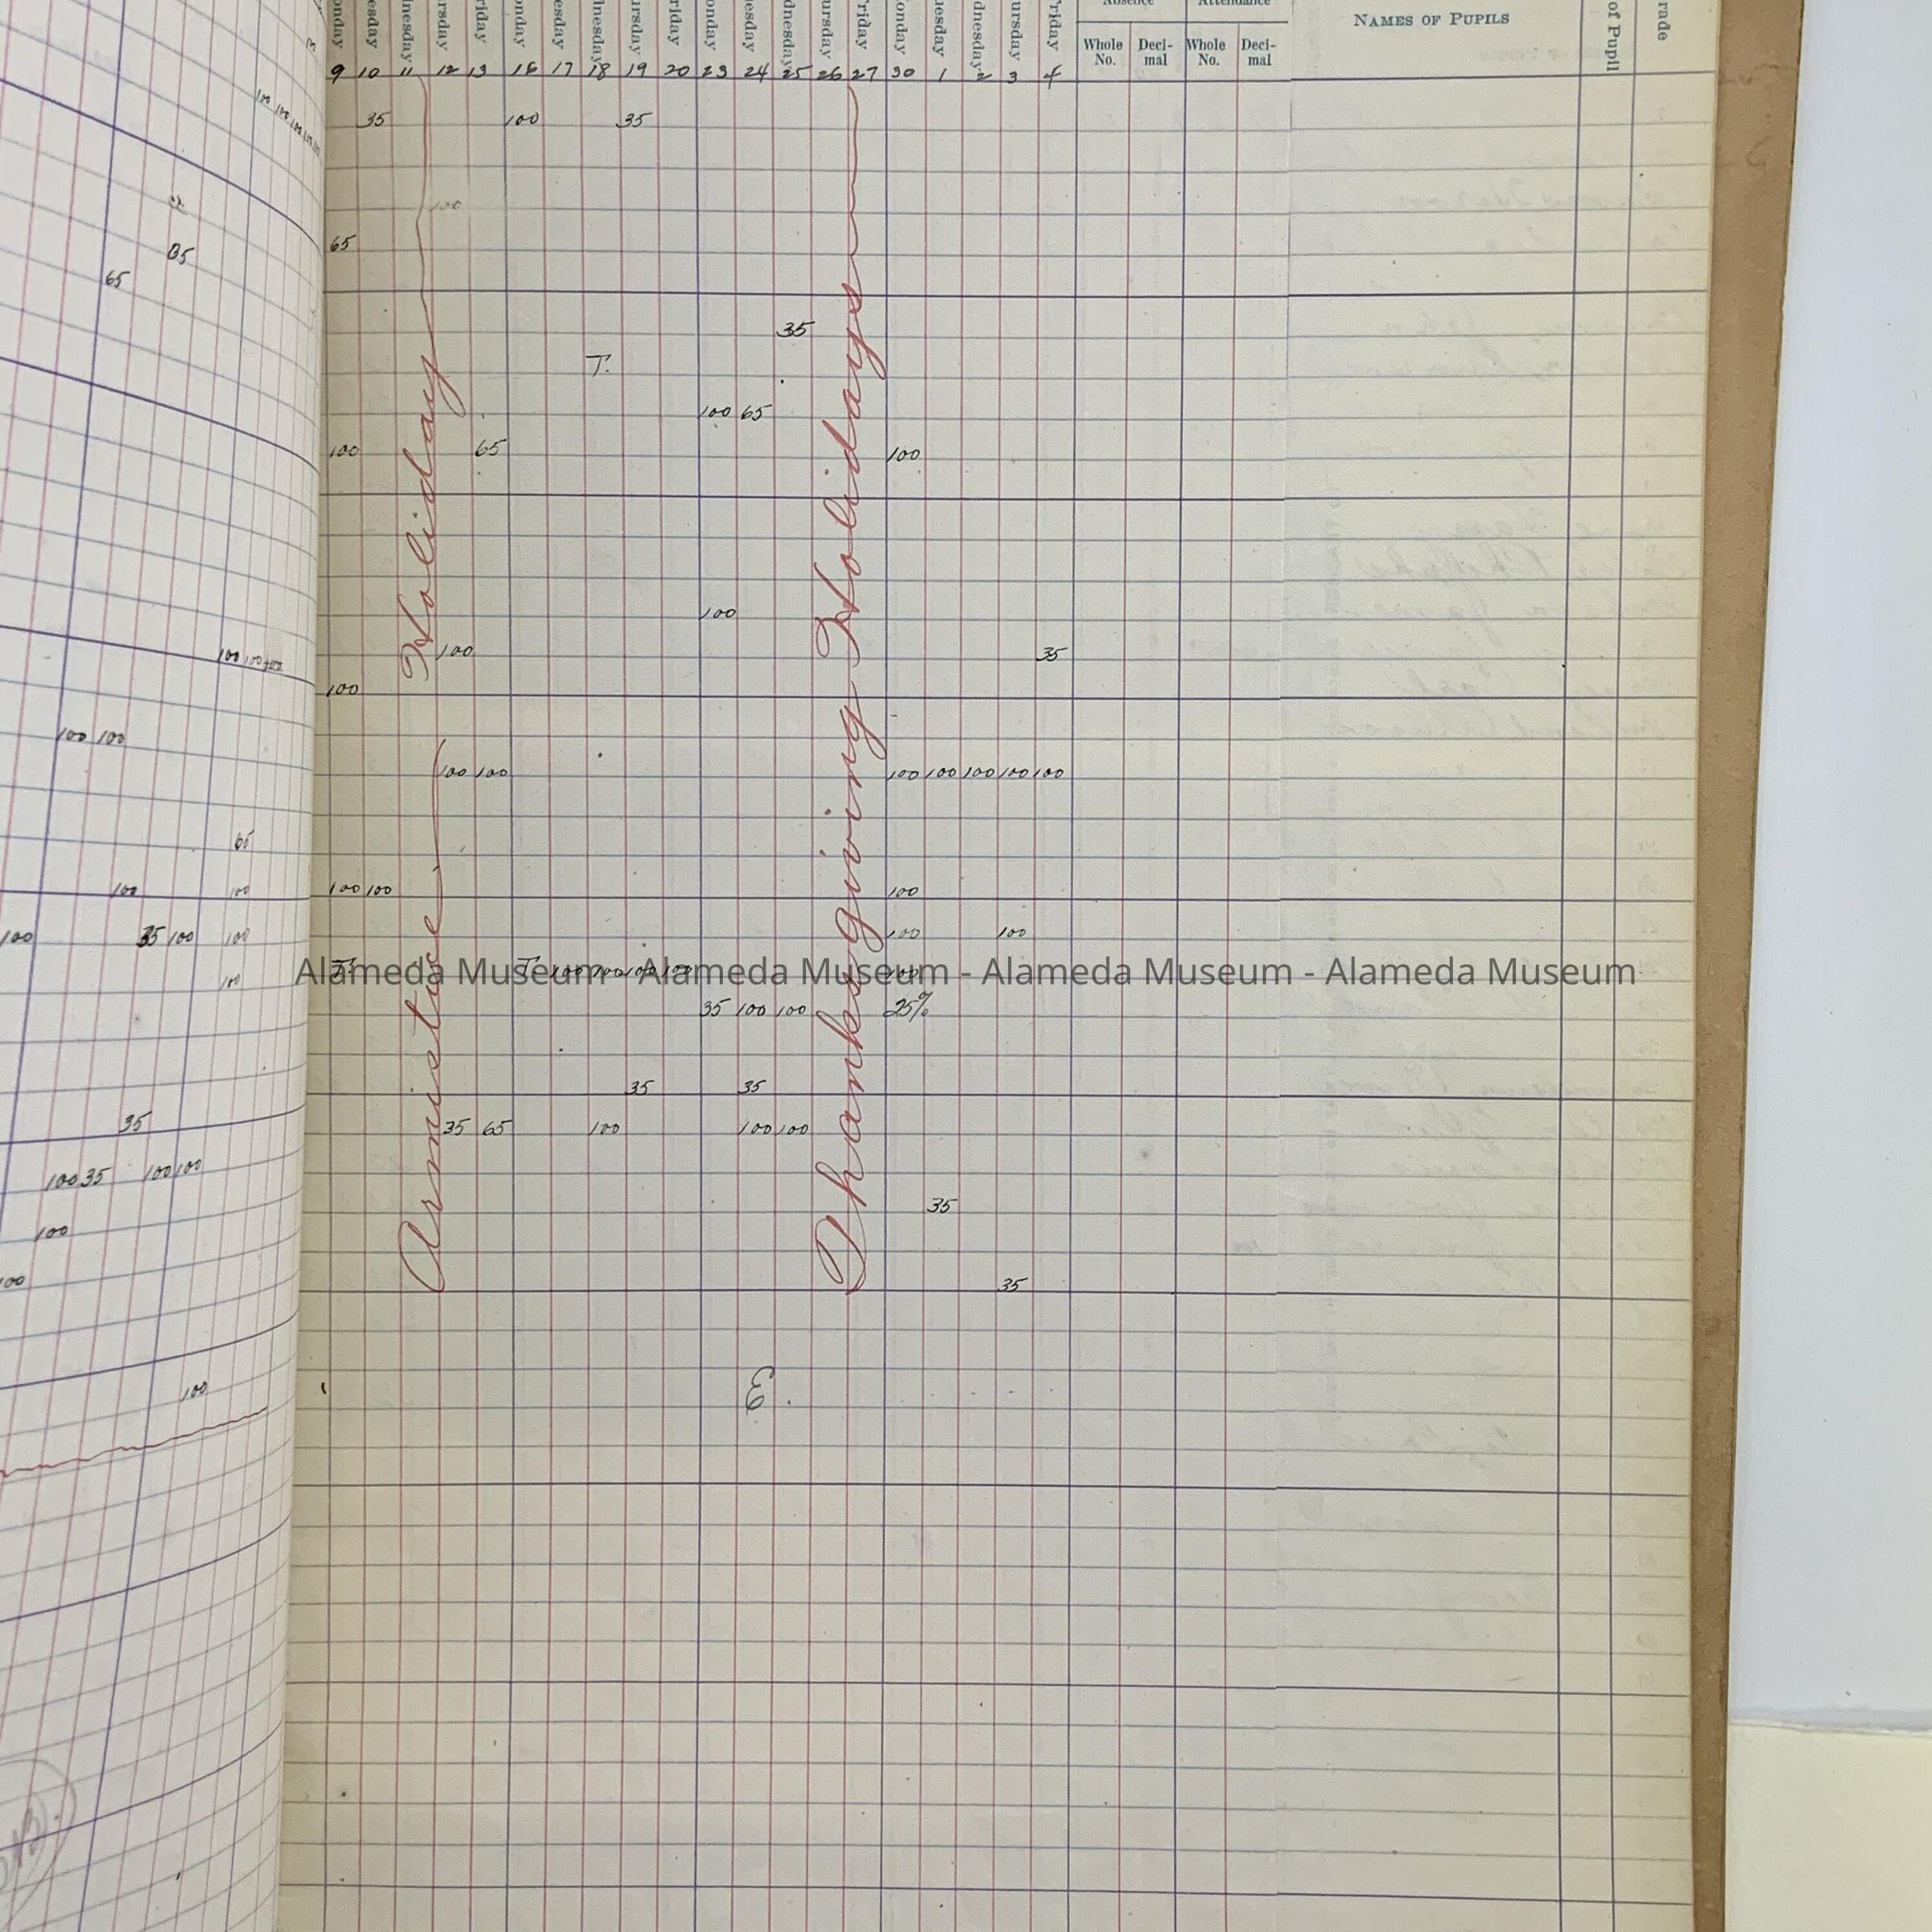 Absence Attendance
NAMES OF PUPILS
of Pupil
rade
onday esday dnesday ursday riday onday esday dnesday ursday riday onday esday dnesday ursday Friday onday uesday dnesday ursday Friday
Whole No. Deci- mal Whole No. Deci- mal
9 10 11 12 13 16 17 18 19 20 23 24 25 26 27 30 1 2 3 4
35 100 35
100
65
85
65
35
T.
100 65
100 65 100
100
100 35
100 100
100
100 100
100 100 100 100 100 100 100
65
100 100 100 100 100
100 35 100 100 100 100
100 T. T. 100 100 100 100 100
35 100 100 25%
35 35
35 35 65 100 100 100
100 35 100 100
35
100
100 35
100
E.
Armistice Holiday
Thanksgiving Holidays
Alameda Museum - Alameda Museum - Alameda Museum - Alameda Museum